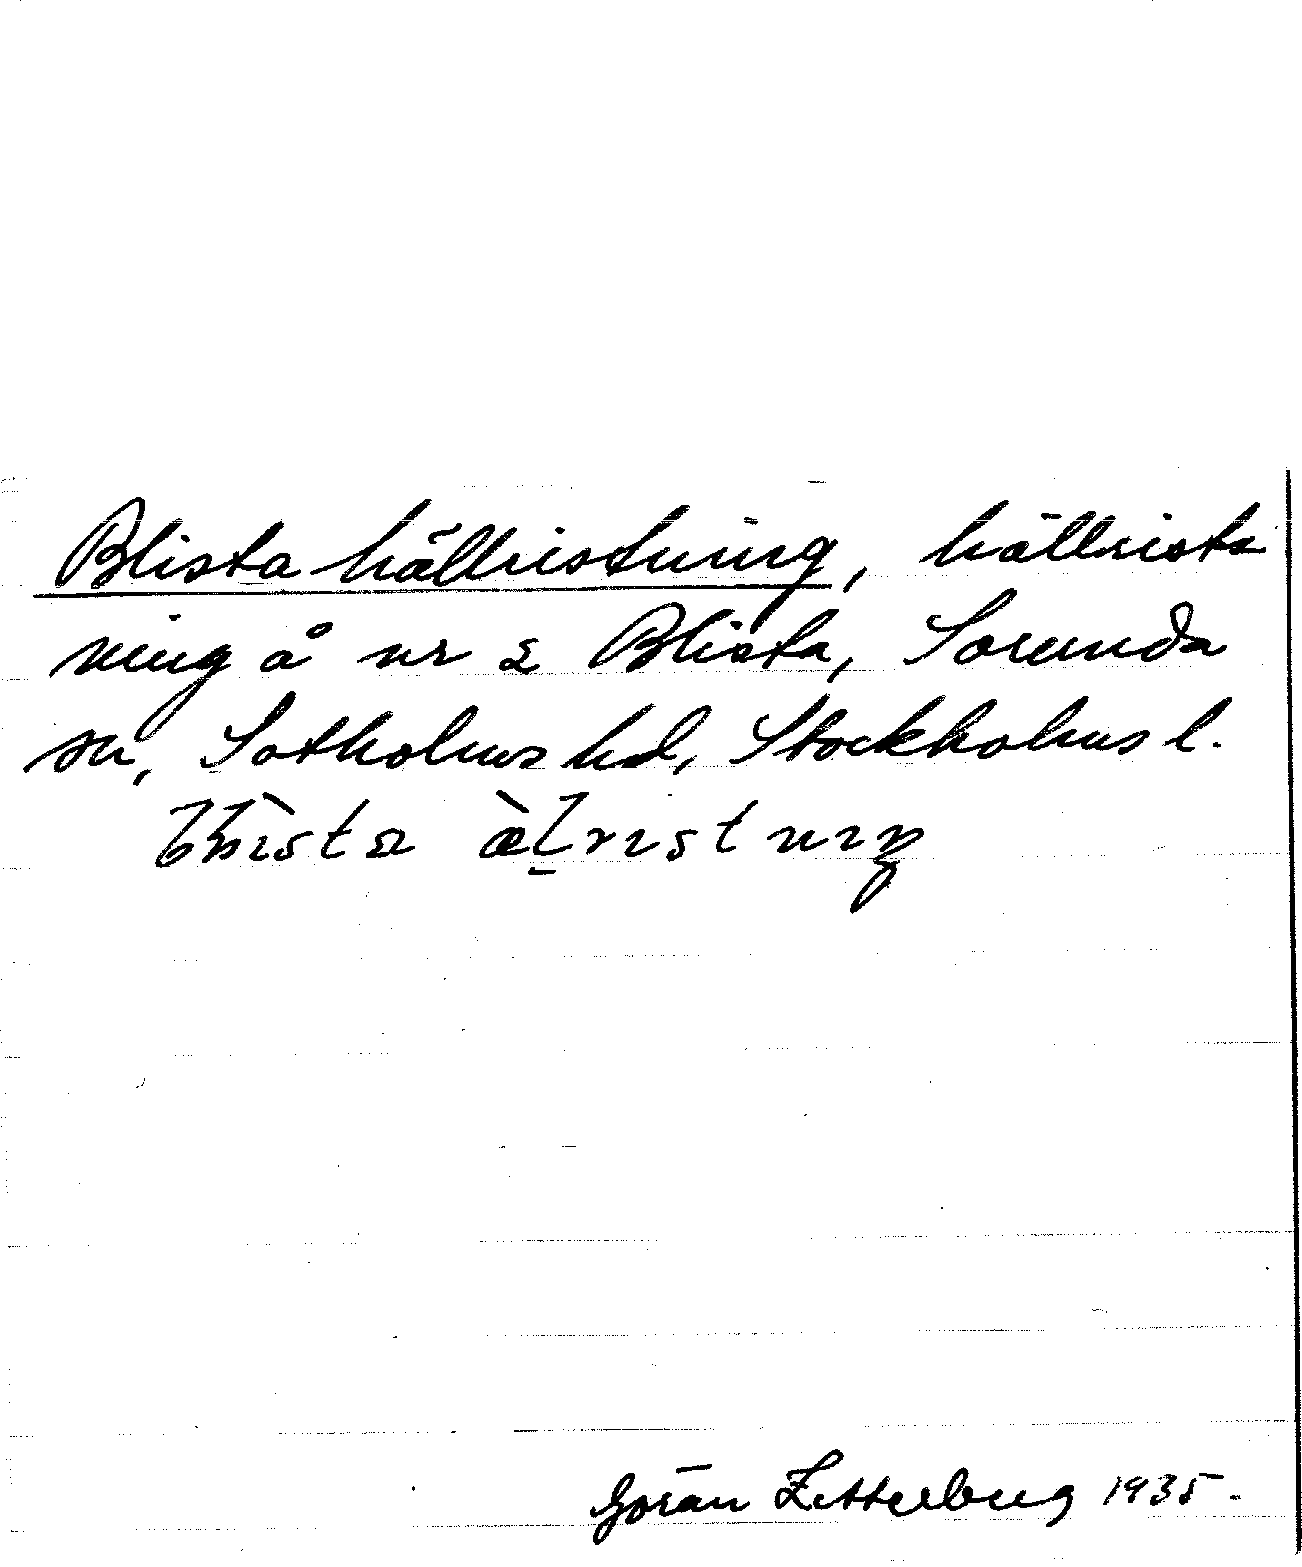 Blista hällristning, hällrist
ning å nr 2 Blista, Sorunda
sn, Sotholms hd, Stockholms l.
Göran Zetterberg 1935.